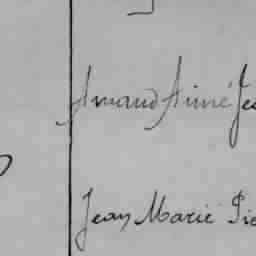 Amand Aimé Je
Jean Marie Pie